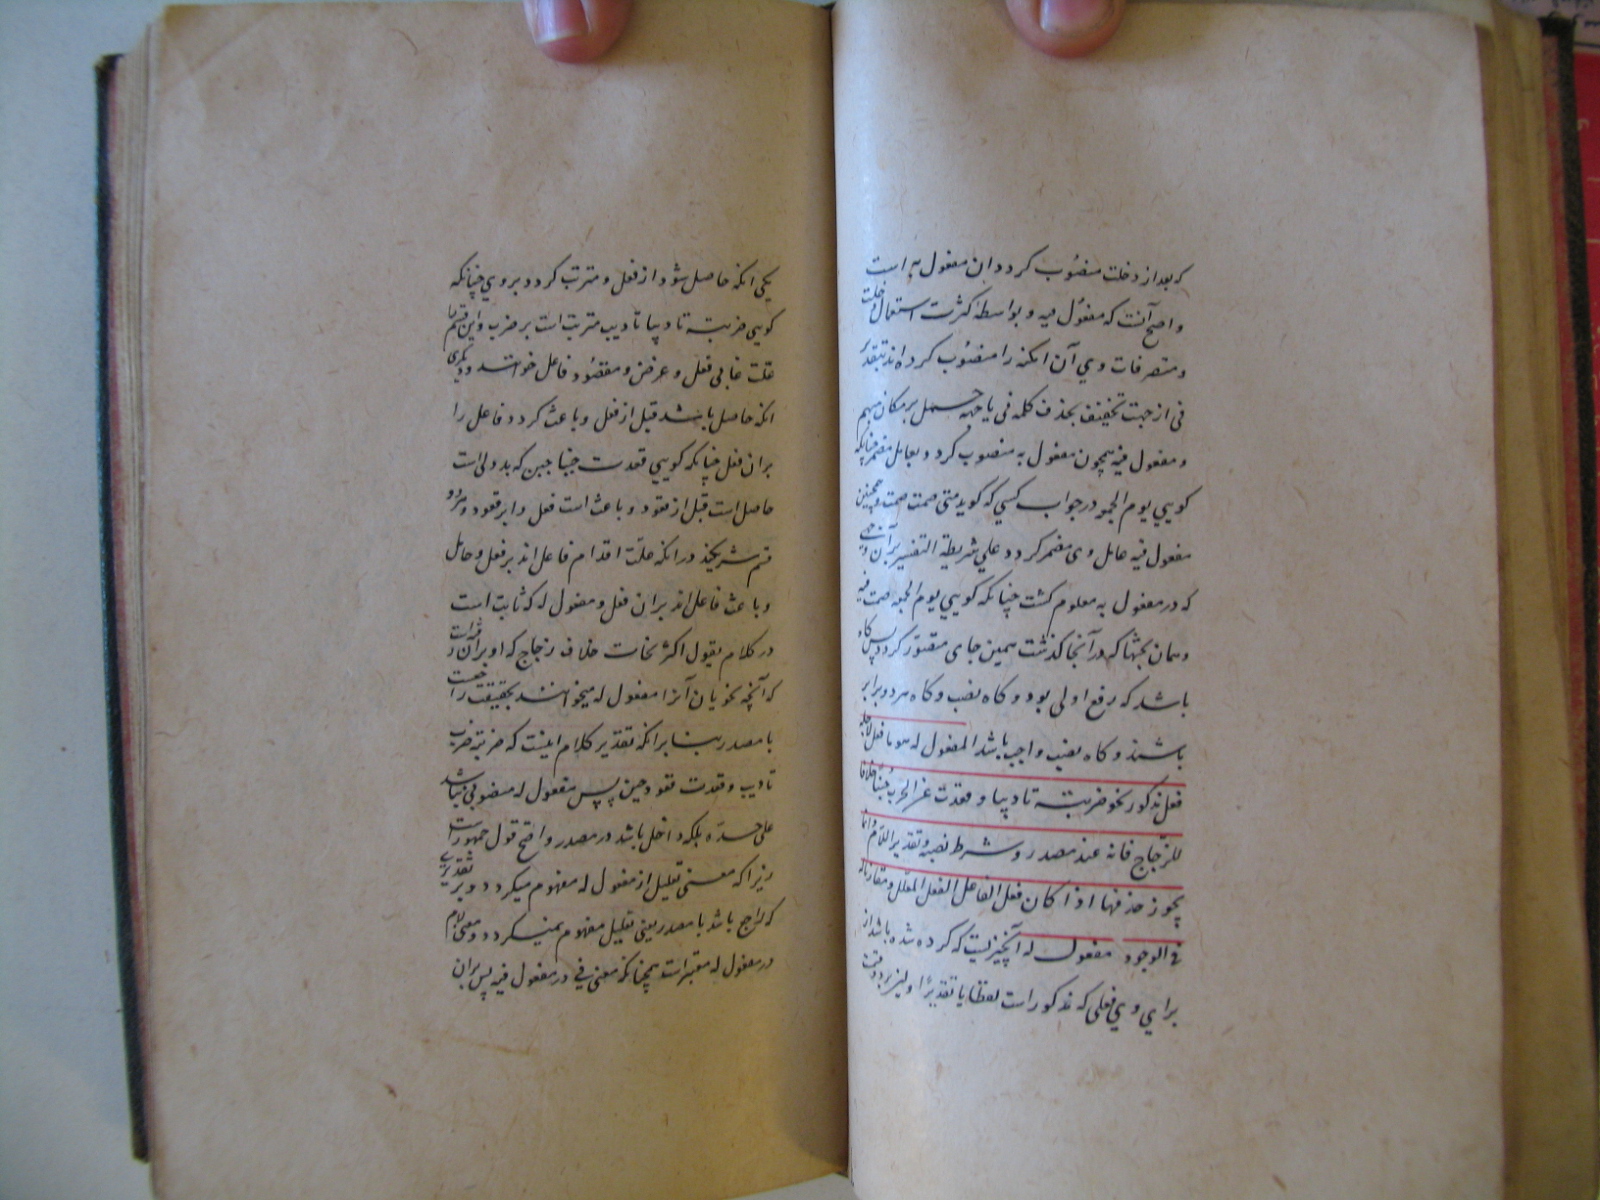 که بعد از دخلت منصوب کردد ان مفعول به است
و اصح آنست که مفعول فیه و بواسطه کثرت استعمال دخلت
و متصرفات وی آن امکنه را منصوب کرده اند بتقدیر
فی از جهت تخفیف بحذف کلمه فی یا جهه حمل بر مکان مبهم
و مفعول فیه همچون مفعول به منصوب کردد بعامل مضمر چنانکه
کویی یوم الجمعه در جواب کسی که کوید متی صمت صمت و همچنین
مفعول فیه عامل وی مضمر کردد علی شریطة التفسیر بر آن وجهی
که در مفعول به معلوم کشت چنانکه کویی یوم الجمعه صمت فیه
و همان بحثها که در آنجا کذشت همین جای متصور کردد پس کاه
باشد که رفع اولی بود و کاه نصب و کاه هر دو برابر
باشند و کاه نصب واجب باشد المفعول له هو ما فعل لاجله
فعل مذکور نحو ضربته تادیبا و قعدت عن الحرب جبنا خلافا
للزجاج فانه عنده مصدر و شرط نصبه تقدیر اللام و انما
یجوز حذفها اذا کان فعلا لفاعل الفعل المعلل و مقارنا له
فی الوجود مفعول له آنچیزیست که کرده شده باشد از
برای وی فعلی که مذکور است لفظا یا تقدیرا و این بر دو قسمت
یکی انکه حاصل شود از فعل و مترتب کردد بر وی چنانکه
کویی ضربته تادیبا تادیب مترتب است بر ضرب و این قسم را
علت غایی فعل و غرض و مقصود فاعل خوانند و دیکری
انکه حاصل باشد قبل از فعل و باعث کردد فاعل را
بران فعل چنانکه کویی قعدت جبنا جبن که بددلی است
حاصل است قبل از قعود و باعث است فعل را بر قعود و هر دو
قسم شریکند در انکه علت اقدام فاعل اند بر فعل و حامل
و باعث فاعل اند بران فعل و مفعول له که ثابت است
در کلام بقول اکثر نحات خلاف زجاج که او بر آن رفته است
که آنچه نحویان آنرا مفعول له میخوانند بحقیقت راجعست
با مصدر بنا بر انکه تقدیر کلام اینست که ضربته ضرب
تادیب و قعدت قعود جبن پس مفعول له منصوبی نباشد
علی حده بلکه داخل باشد در مصدر و اصح قول جمهور است
زیرا که معنی تعلیل از مفعول له مفهوم میکردد و بر تقدیری
که راجع باشد با مصدر یعنی تعلیل مفهوم نمیکردد و معنی لام
در مفعول له معتبر است همچنانکه معنی فی در مفعول فیه پس بران